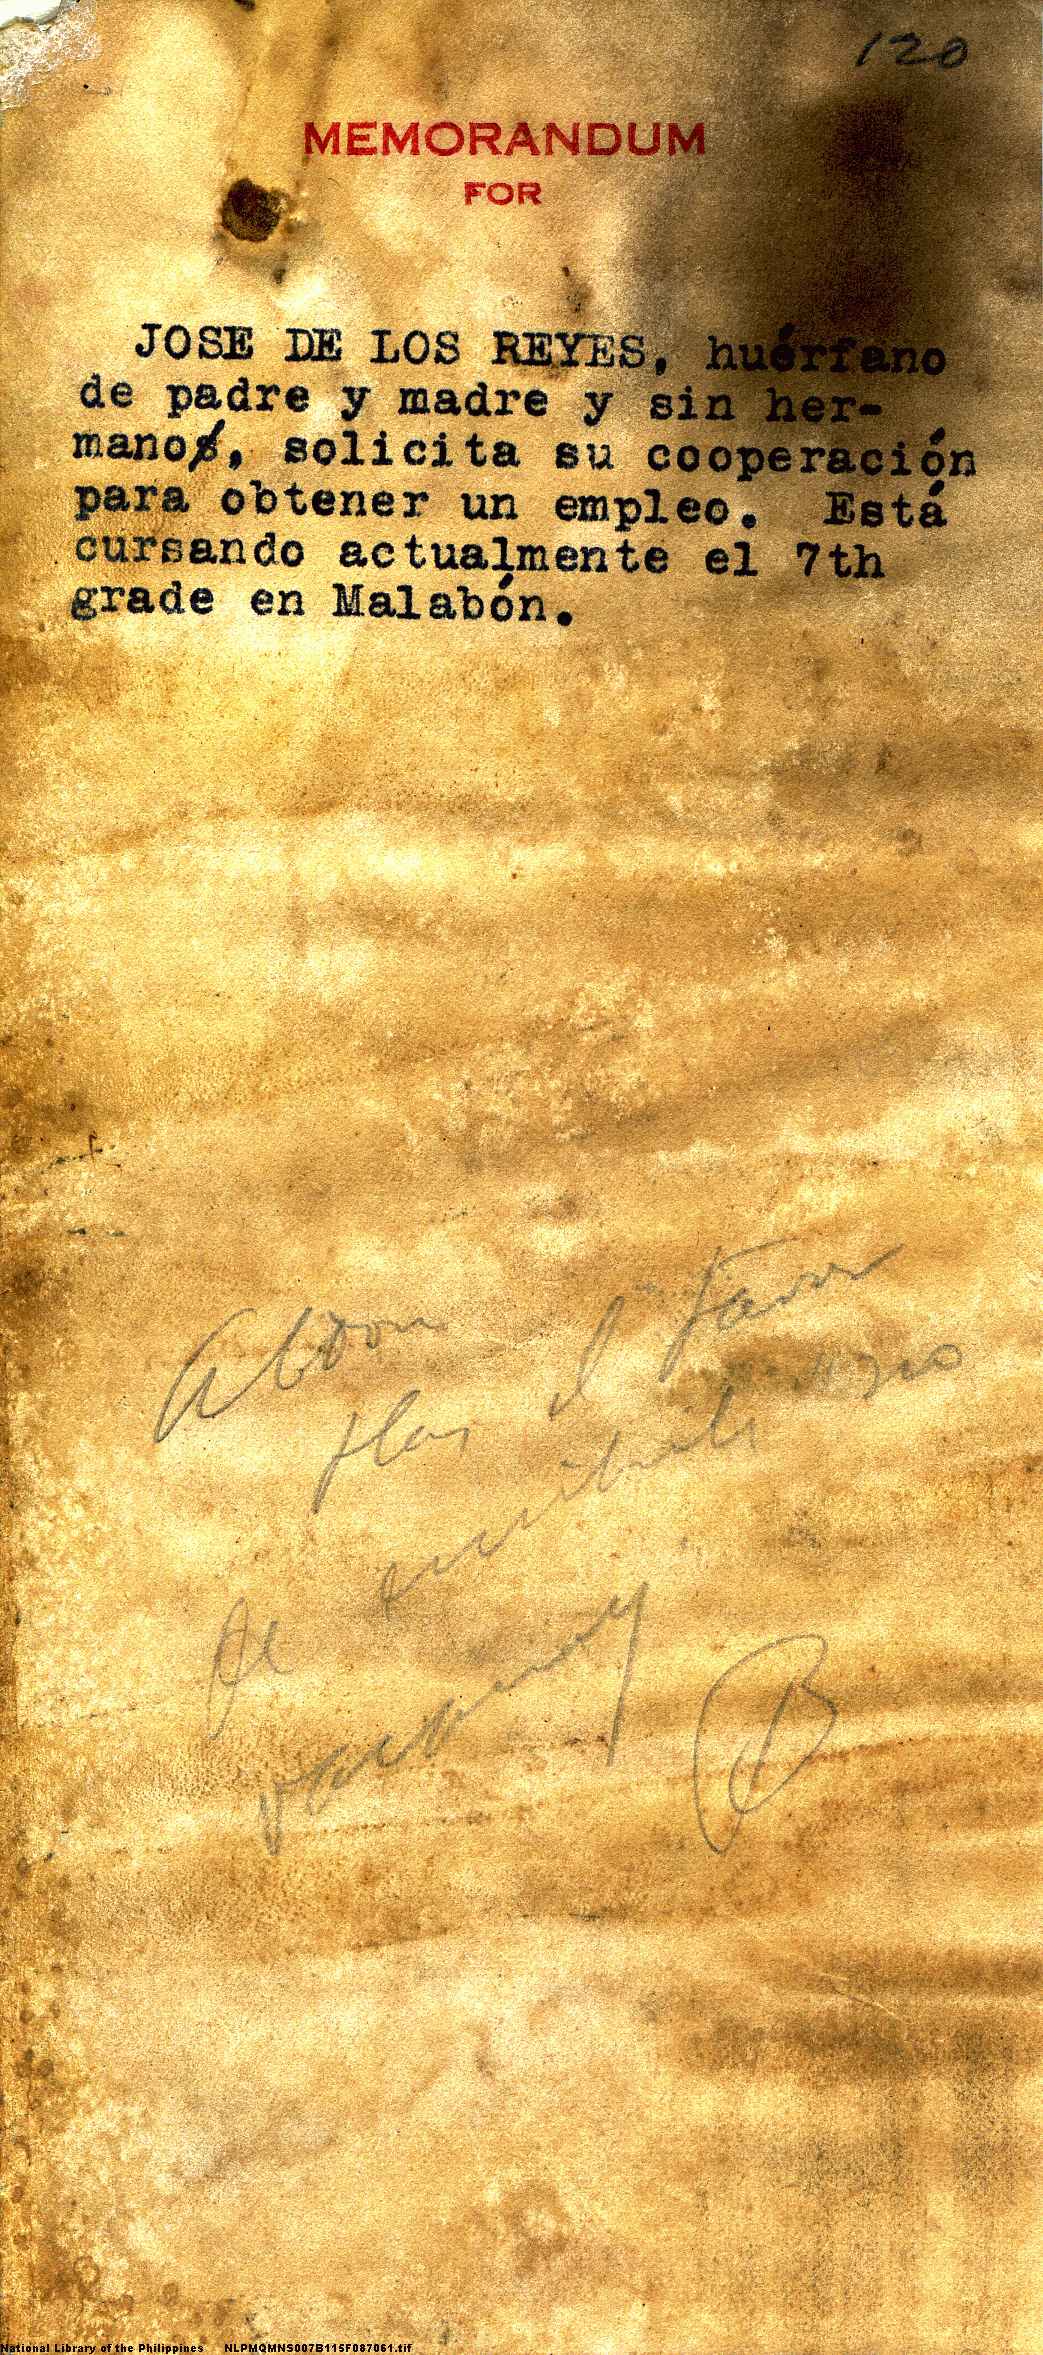 120
MEMORANDUM
FOR
JOSE DE LOS REYES, huérfano
de padre y madre y sin her-
manos, solicita su cooperación
para obtener un empleo. Está
cursando actualmente el 7th
grade en Malabón.
Abdon
Haz el favor
de
B
National Library of the Philippines NLPMQMNS007B115F087061.tif